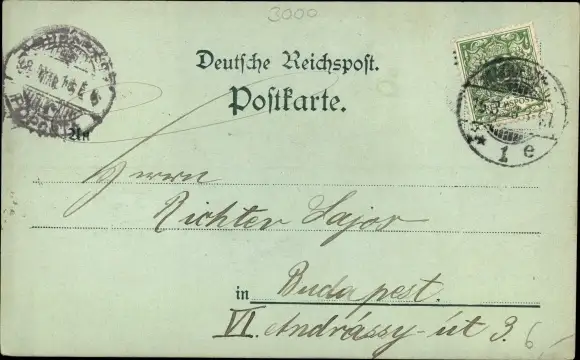 3000
Deutsche Reichspost.
Postkarte.
An
Herrn
Richter Lajos
in Budapest.
VI. Andrássy-út 3.
6
1 e